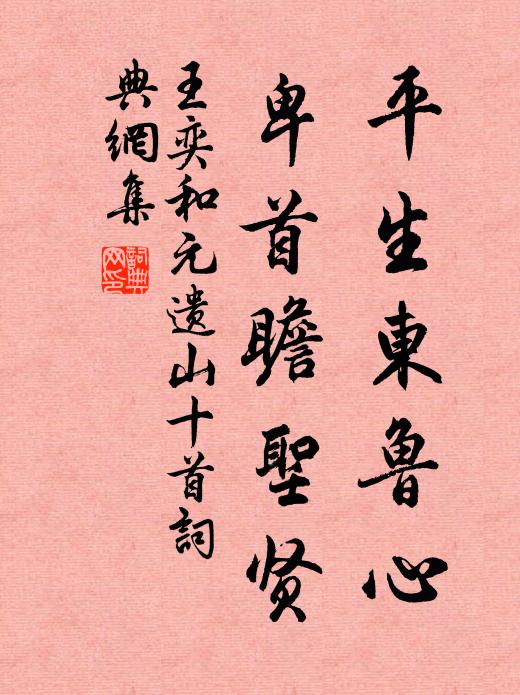 平生東魯心
卑首瞻聖贤
王奕和元遗山十首詞
典網集
詞典网印